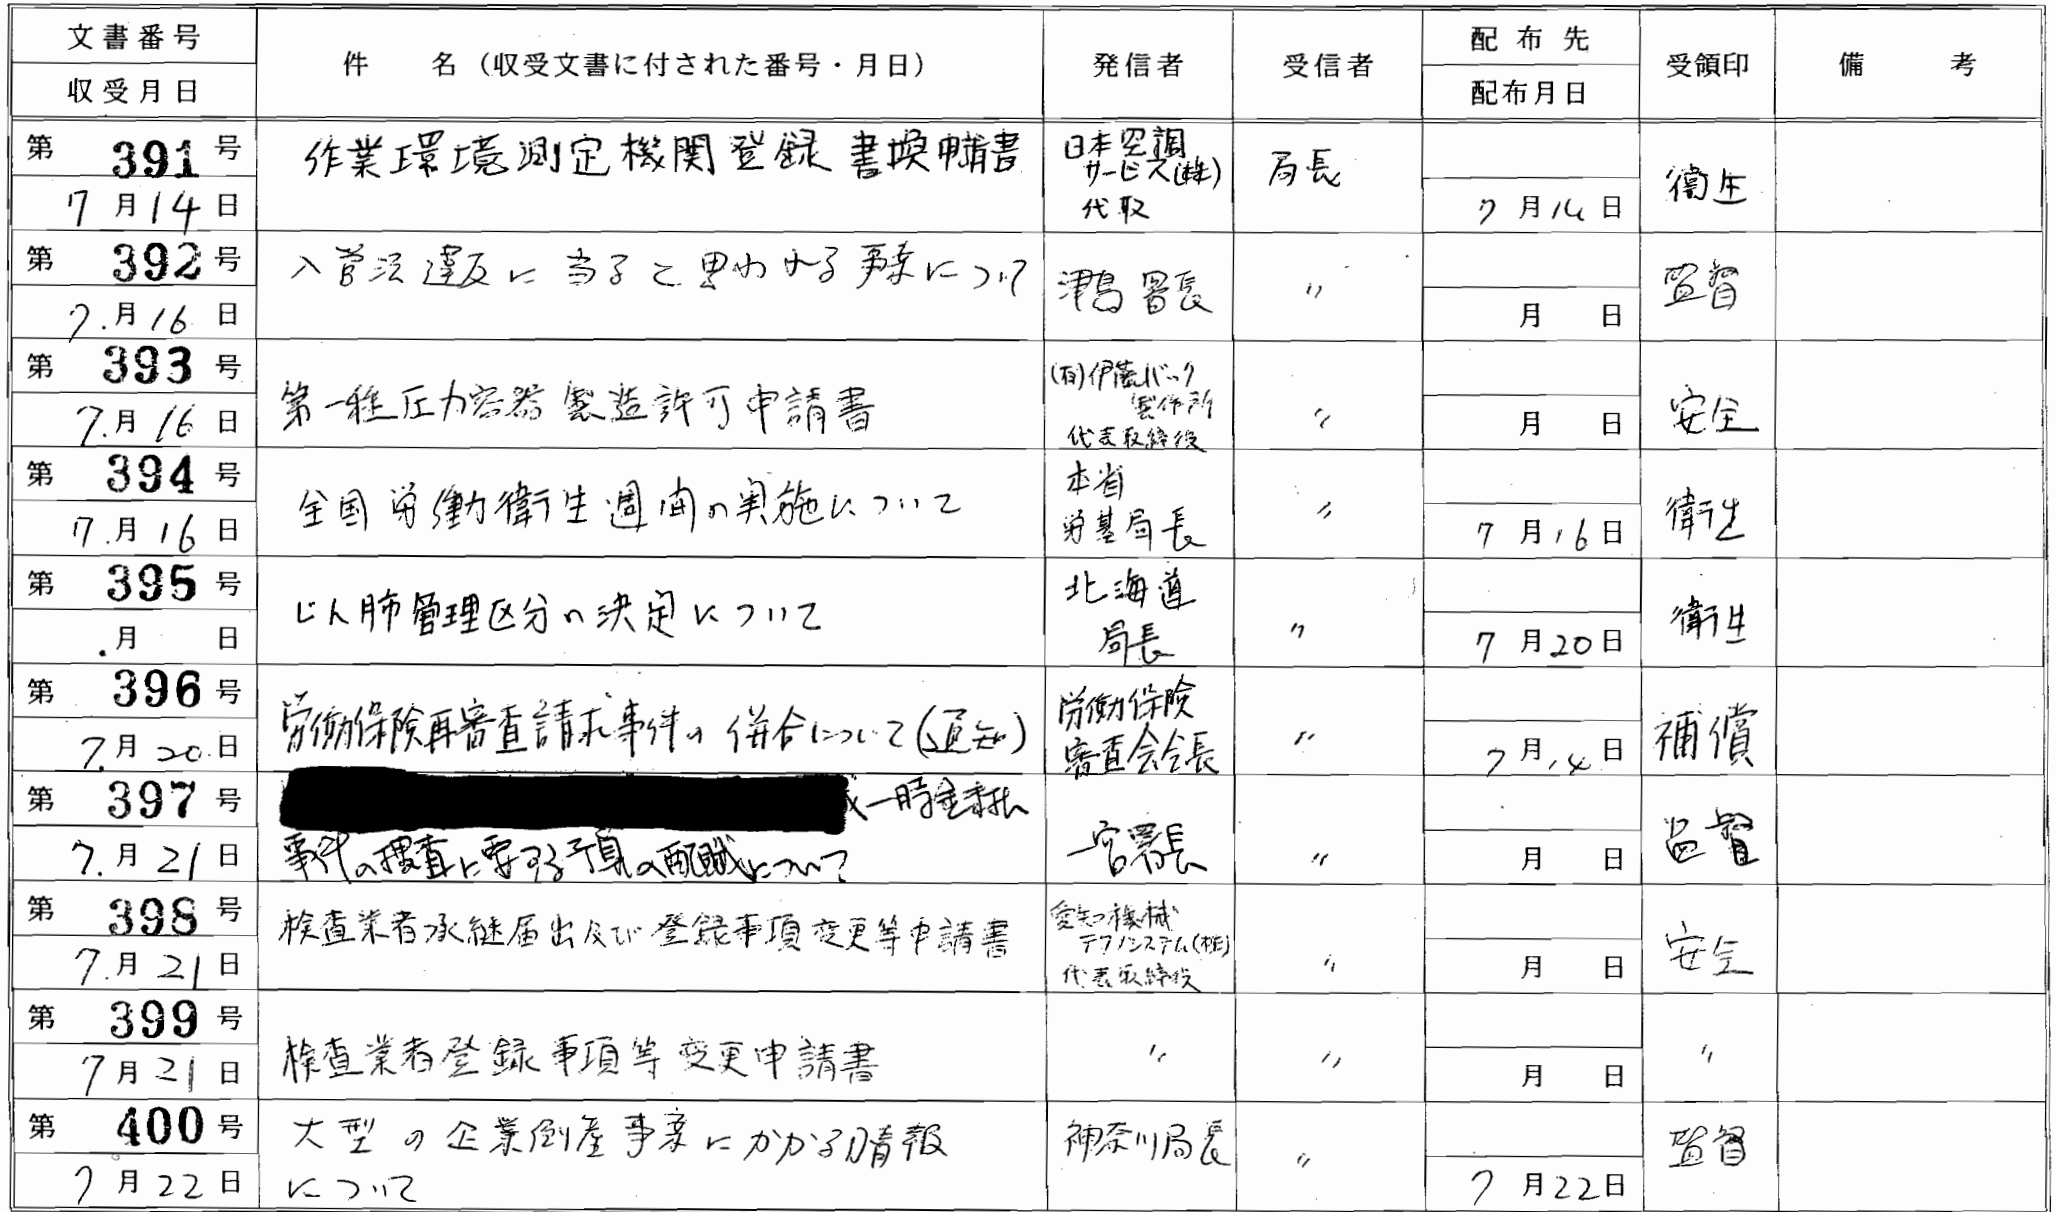 文書番号
収受月日
件 名（収受文書に付された番号・月日）
発信者
受信者
配布先
配布月日
受領印
備 考
第 391 号
7月14日
作業環境測定機関登録書換申請書
日本空調
サービス(株)
代取
局長
7月14日
衛生
第 392 号
7.月16日
入管法違反に当ると思われる事案について
津島署長
〃
月 日
監督
第 393 号
7.月16日
第一種圧力容器製造許可申請書
(有)伊藤バック
製作所
代表取締役
〃
月 日
安全
第 394 号
7.月16日
全国労働衛生週間の実施について
本省
労基局長
〃
7月16日
衛生
第 395 号
.月 日
じん肺管理区分の決定について
北海道
局長
〃
7月20日
衛生
第 396 号
7.月20.日
労働保険再審査請求事件の併合について(通知)
労働保険
審査会会長
〃
7月14日
補償
第 397 号
7.月21日
一時金未払
事件の捜査に要する予算の配賦について
一宮署長
〃
月 日
監督
第 398 号
7.月21日
検査業者承継届出及び登録事項変更等申請書
愛知機械
テクノシステム(株)
代表取締役
〃
月 日
安全
第 399 号
7月21日
検査業者登録事項等変更申請書
〃
〃
月 日
〃
第 400 号
7月22日
大型の企業倒産事案にかかる情報
について
神奈川局長
〃
7月22日
監督